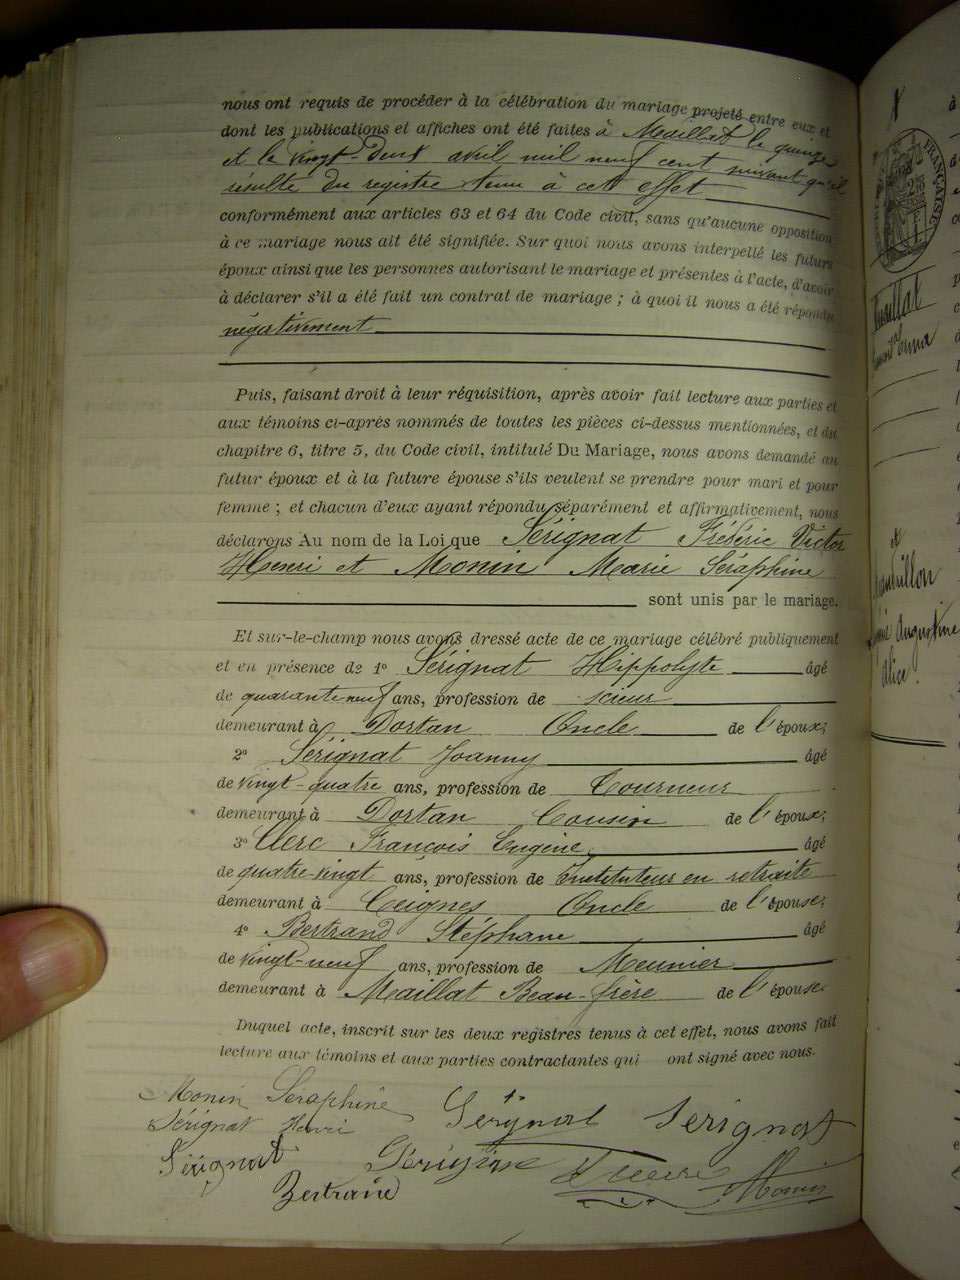 nous ont requis de procéder à la célébration du mariage projeté entre eux et
dont les publications et affiches ont été faites à Maillat le quinze
et le vingt-deux avril mil neuf cent suivant qu'il
résulte du registre tenu à cet effet
conformément aux articles 63 et 64 du Code civil, sans qu'aucune opposition
à ce mariage nous ait été signifiée. Sur quoi nous avons interpellé les futurs
époux ainsi que les personnes autorisant le mariage et présentes à l'acte, d'avoir
à déclarer s'il a été fait un contrat de mariage ; à quoi il nous a été répondu
négativement
Puis, faisant droit à leur réquisition, après avoir fait lecture aux parties et
aux témoins ci-après nommés de toutes les pièces ci-dessus mentionnées, et du
chapitre 6, titre 5, du Code civil, intitulé Du Mariage, nous avons demandé au
futur époux et à la future épouse s'ils veulent se prendre pour mari et pour
femme ; et chacun d'eux ayant répondu séparément et affirmativement, nous
déclarons Au nom de la Loi que Sérignat Frédéric Victor
Henri et Monin Marie Séraphine
sont unis par le mariage.
Et sur-le-champ nous avons dressé acte de ce mariage célébré publiquement
et en présence de 1º Sérignat Hippolyte âgé
de quarante neuf ans, profession de scieur
demeurant à Dortan Oncle de l'époux;
2º Sérignat Joanny âgé
de vingt-quatre ans, profession de Tourneur
demeurant à Dortan Cousin de l'époux;
3º Clerc François Eugène, âgé
de quatre-vingt ans, profession de Instituteur en retraite
demeurant à Ceignes Oncle de l'épouse;
4º Bertrand Stéphane âgé
de vingt-neuf ans, profession de Meunier
demeurant à Maillat Beau-frère de l'épouse
Duquel acte, inscrit sur les deux registres tenus à cet effet, nous avons fait
lecture aux témoins et aux parties contractantes qui ont signé avec nous.
Monin Séraphine Sérignat Sérignat
Sérignat Henri
Sérignat Monin
Bertrand
FRANÇAISE
Maillat
et
Augustine
Alice.